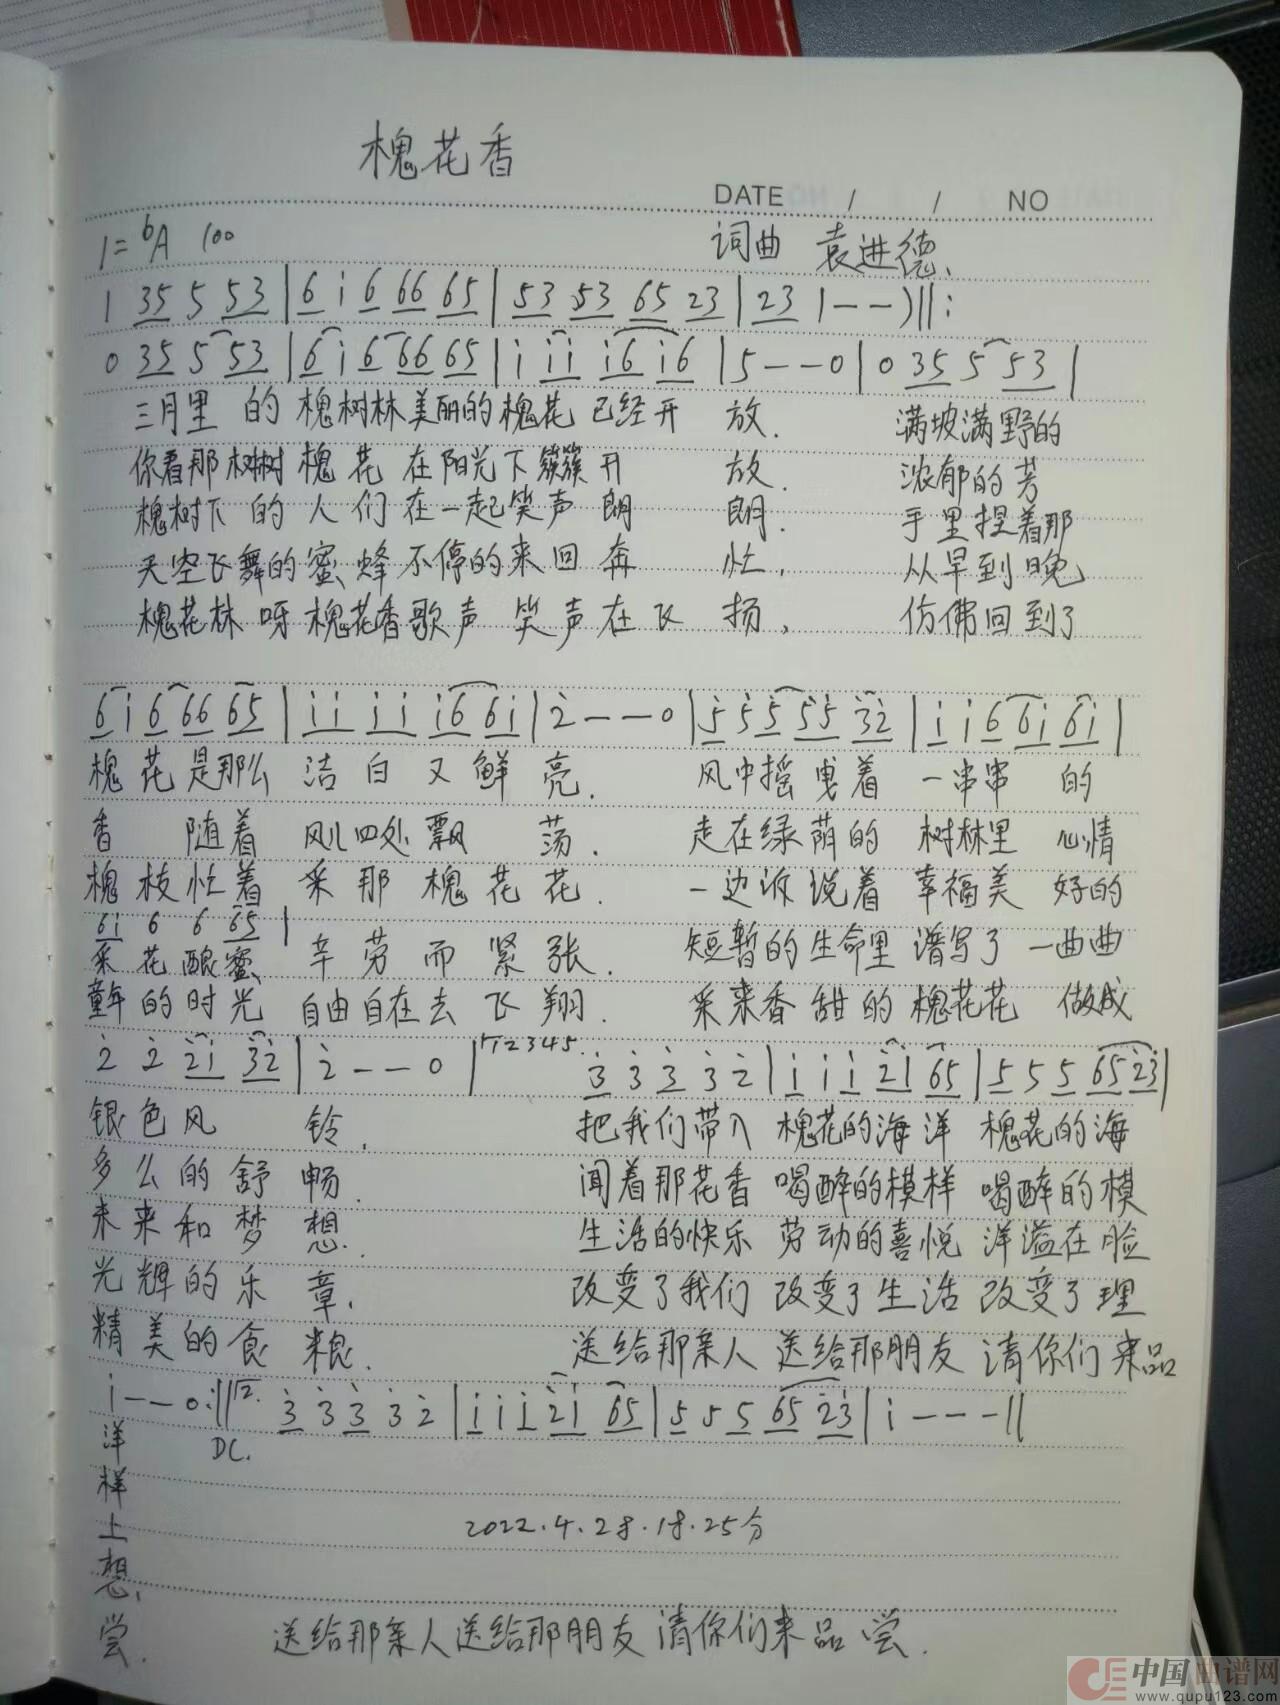 槐花香
DATE / / NO
1=ᵇA 100
词曲 袁进德、
1 35 5 53 | 6 i 6 66 65 | 53 53 65 23 | 23 1 - - ) ‖:
0 35 5 53 | 6 i 6 66 65 | i ii i6 i6 | 5 - - 0 | 0 35 5 53 |
三月里 的 槐树林美丽的槐花 已经开 放. 满坡满野的
你看那树树 槐 花 在阳光下簇簇开 放. 浓郁的芳
槐树下 的 人们在一起笑声 朗 朗. 手里捏着那
天空飞舞的蜜蜂不停的来回奔 忙, 从早到晚
槐花林 呀 槐花香歌声 笑声在飞 扬, 仿佛回到了
6 i 6 66 65 | ii i i i6 6i | 2 - - 0 | 5 5 5 55 32 | i i 6 6i 6i |
槐 花 是那么 洁 白 又 鲜 亮. 风中摇曳着 一串串 的
香 随着 风儿四处飘 荡. 走在绿荫的 树林里 心情
槐枝忙着 采 那 槐 花 花. 一边诉说着 幸福美 好的
6i 6 6 65 |
采花酿蜜 辛 劳 而 紧 张. 短暂的生命里 谱写了 一曲曲
童年的时光 自由自在去 飞 翔. 采来香甜的 槐花花 做成
2 2 21 32 | 2 - - 0 | 12345. 3 3 3 3 2 | i i i 21 65 | 5 5 5 65 23 |
银色风 铃. 把我们带入 槐花的海洋 槐花的海
多么的舒畅. 闻着那花香 喝醉的模样 喝醉的模
未来和梦 想. 生活的快乐 劳动的喜悦 洋溢在脸
光辉的乐 章, 改变了我们 改变了生活 改变了理
精美的食 粮. 送给那亲人 送给那朋友 请你们来品
i - - 0 :‖ 2. 3 3 3 3 2 | i i i 21 65 | 5 5 5 65 23 | i - - - ‖
洋 DC.
样
上 2022.4.28.18.25分
想,
尝. 送给那亲人送给那朋友请你们来品尝.
中国曲谱网
www.qupu123.com